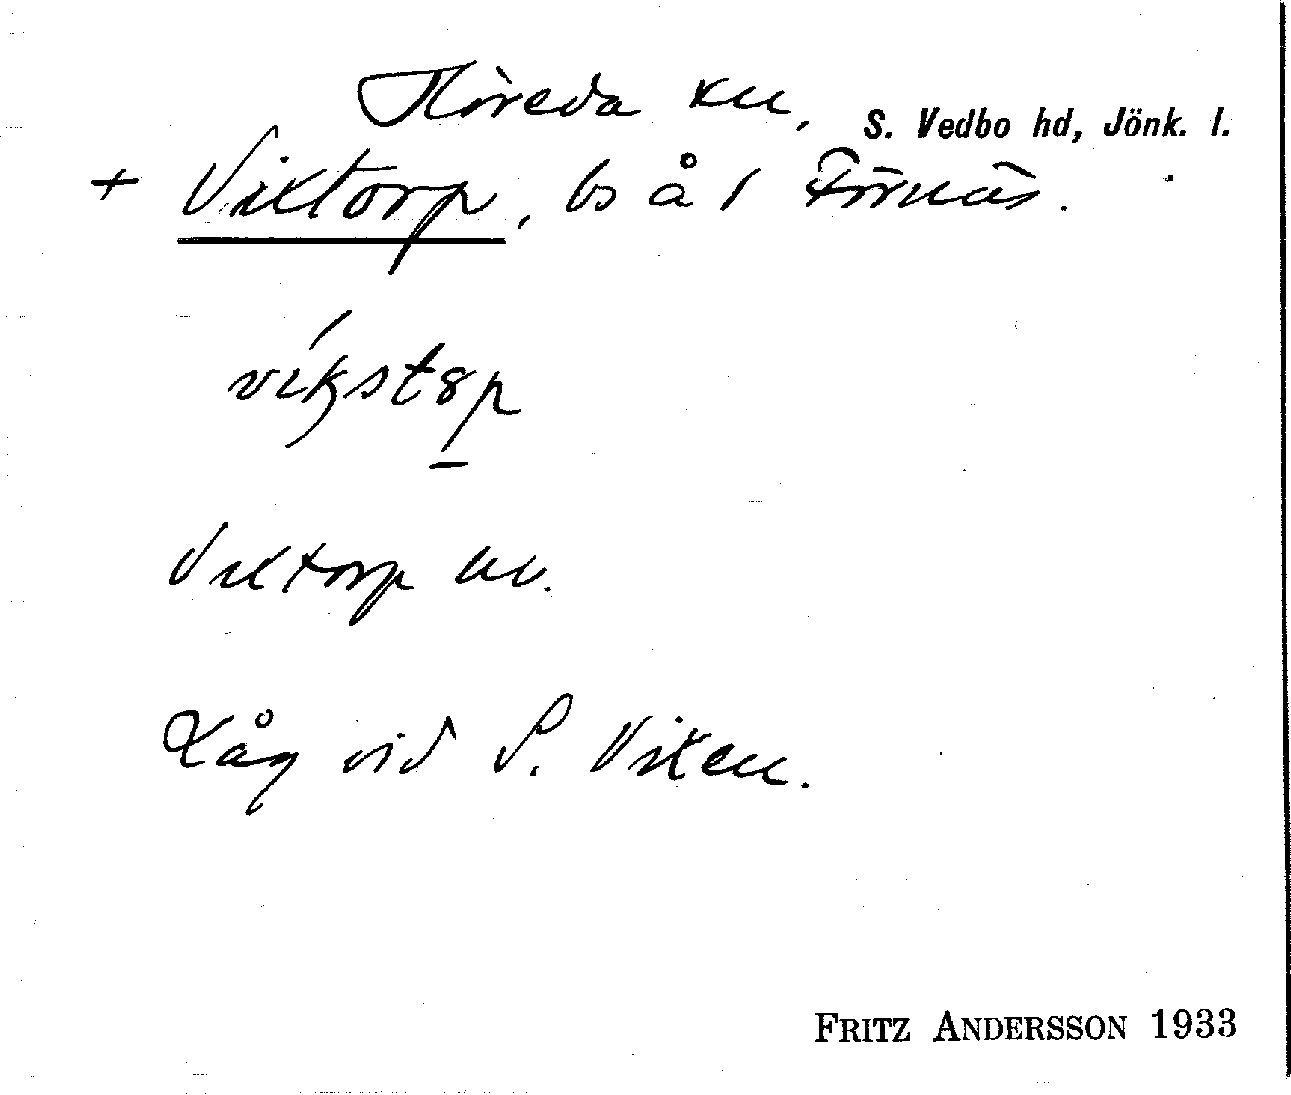 Höreda sn,
S. Vedbo hd, Jönk. l.
+ Viktorp, bs å 1 Förnäs.
víkstȣp
Viktorp km.
Låg vid S. Vixen.
FRITZ ANDERSSON 1933